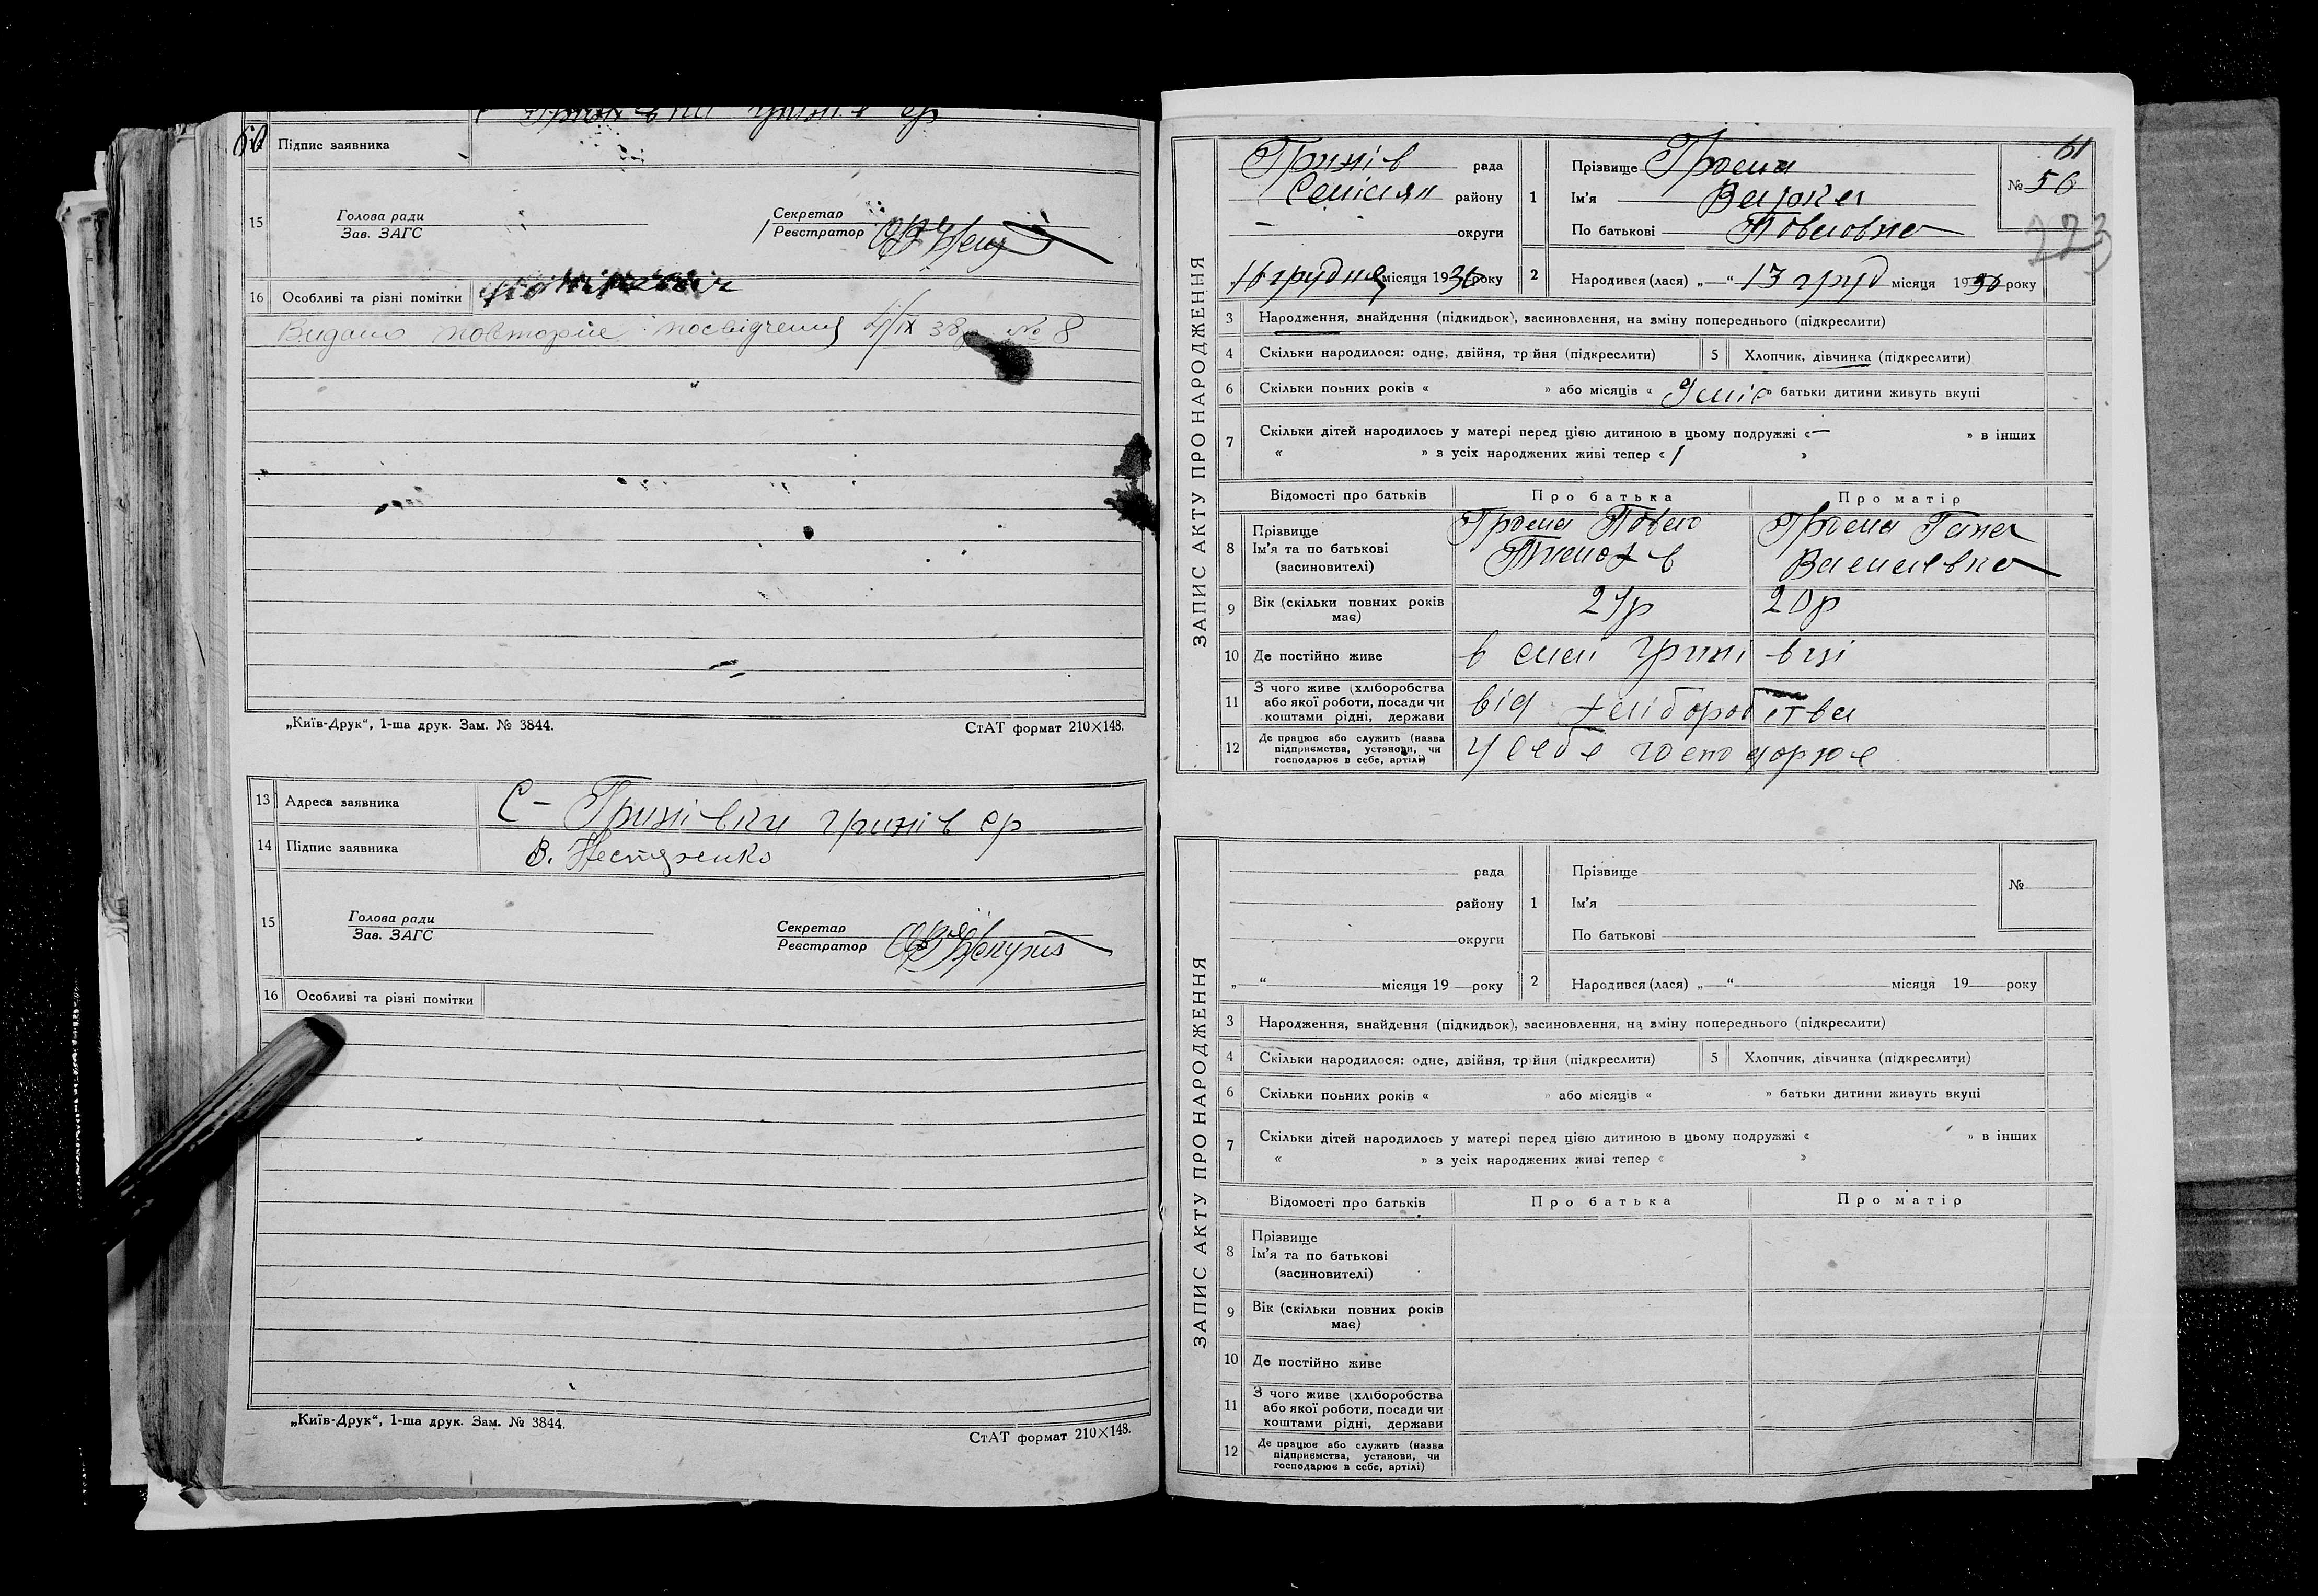 60
Підпис заявника
15
Голова ради
Зав. ЗАГС
Секретар
Реєстратор
16 Особливі та різні помітки
Видано повторне посвідчення 4/IX 38р. № 8
„Київ-Друк“, 1-ша друк. Зам. № 3844.
СтАТ формат 210×148.
13 Адреса заявника С- Гринівки гринів ср
14 Підпис заявника В. Нестеренко
15
Голова ради
Зав. ЗАГС
Секретар
Реєстратор
16 Особливі та різні помітки
„Київ-Друк“, 1-ша друк. Зам. № 3844.
СтАТ формат 210×148.
61
ЗАПИС АКТУ ПРО НАРОДЖЕННЯ
Гринів рада
району
округи
1 Прізвище
Ім'я Варка
По батькові Повловна
№ 56
223
„16 грудня місяця 1930 року
2 Народився (лася) „—“ 13 груд місяця 1930 року
3 Народження, знайдення (підкидьок), засиновлення, на зміну попереднього (підкреслити)
4 Скільки народилося: одне, двійня, трійня (підкреслити) 5 Хлопчик, дівчинка (підкреслити)
6 Скільки повних років « » або місяців « » батьки дитини живуть вкупі
7 Скільки дітей народилось у матері перед цією дитиною в цьому подружжі «— » в інших
« » з усіх народжених живі тепер « 1 »
Відомості про батьків Про батька Про матір
8 Прізвище
Ім'я та по батькові
(засновителі)
Повло
Гана
Василівна
9 Вік (скільки повних років має) 20р
10 Де постійно живе в селі гринівці
11 З чого живе (хліборобства або якої роботи, посади чи коштами рідні, держави від хліборобства
12 Де працює або служить (назва підприємства, установи, чи господарює в себе, артілі) у себе господорює
ЗАПИС АКТУ ПРО НАРОДЖЕННЯ
рада
району
округи
1 Прізвище
Ім'я
По батькові
№
„—“ місяця 19 року
2 Народився (лася) „—“ місяця 19 року
3 Народження, знайдення (підкидьок), засиновлення, на зміну попереднього (підкреслити)
4 Скільки народилося: одне, двійня, трійня (підкреслити) 5 Хлопчик, дівчинка (підкреслити)
6 Скільки повних років « » або місяців « » батьки дитини живуть вкупі
7 Скільки дітей народилось у матері перед цією дитиною в цьому подружжі « » в інших
« » з усіх народжених живі тепер « »
Відомості про батьків Про батька Про матір
8 Прізвище
Ім'я та по батькові
(засиновителі)
9 Вік (скільки повних років має)
10 Де постійно живе
11 З чого живе (хліборобства або якої роботи, посади чи коштами рідні, держави
12 Де працює або служить (назва підприємства, установи, чи господарює в себе, артілі)